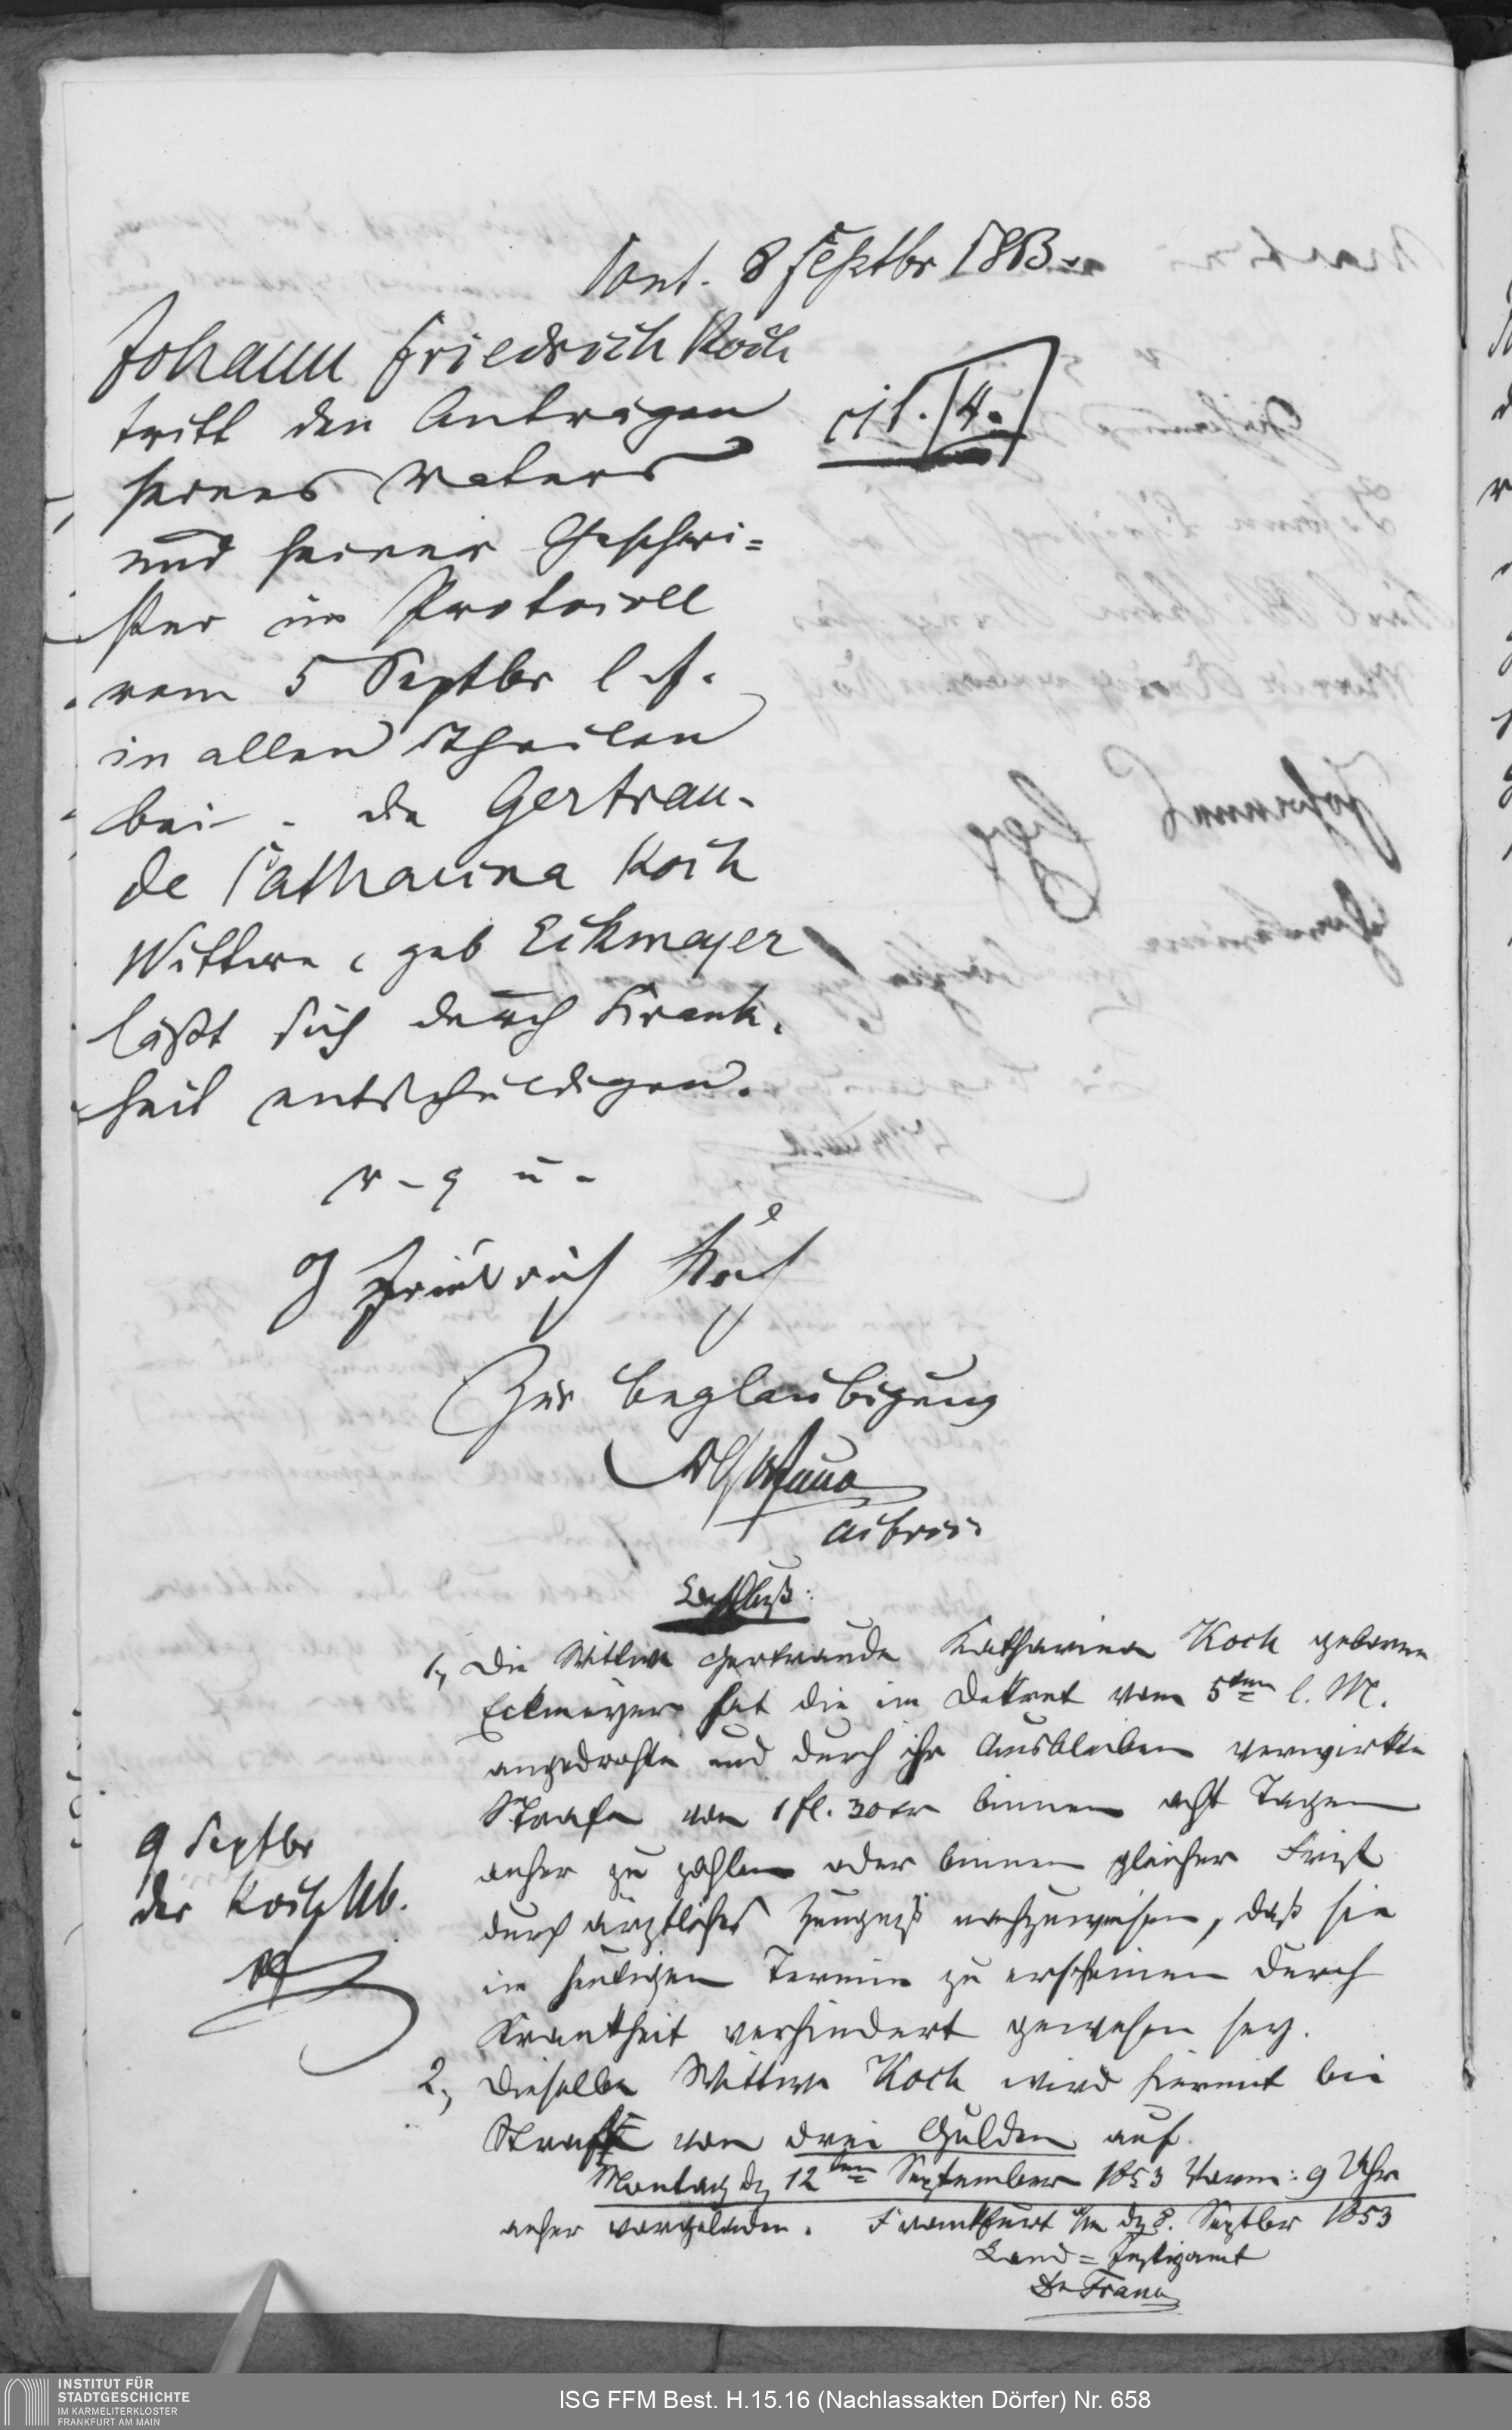 Cont. 8 Septbr 1853.
Johann Friedrich Koch
tritt den Anträgen
seines Vaters
und seiner Geschwi=
ster im Protocoll
vom 5 Septbr l. J.
in allen Theilen
bei. die Gertrau-
de Catharina Koch
Wittwe, geb Eckmeyer
läßt sich durch Krank-
heit entschuldigen.
v. g. u.
J Friedrich Koch
Zur Beglaubigung
Beschluß:
1, Die Wittwe Gertraude Katharina Koch geborene
Eckmeyer hat die im Dekret vom 5ten l. M.
angedrohte und durch ihr Ausbleiben verwirkte
Strafe von 1 fl. 30 xr binnen acht Tagen
anher zu zahlen oder binnen gleicher Frist
durch ärztliches Zeugniß nachzuweisen, daß sie
im heutigen Termin zu erscheinen durch
Krankheit verhindert gewesen sey.
9 Septbr
der Koch Wb.
2, Dieselbe Wittwe Koch wird hiermit bei
Strafe von drei Gulden auf
Montag dg 12ten September 1853 Vorm: 9 Uhr
anher vorgeladen. Frankfurt a/m dg 8. Septber 1853
Land=Justizamt
INSTITUT FÜR
STADTGESCHICHTE
IM KARMELITERKLOSTER
FRANKFURT AM MAIN
ISG FFM Best. H.15.16 (Nachlassakten Dörfer) Nr. 658